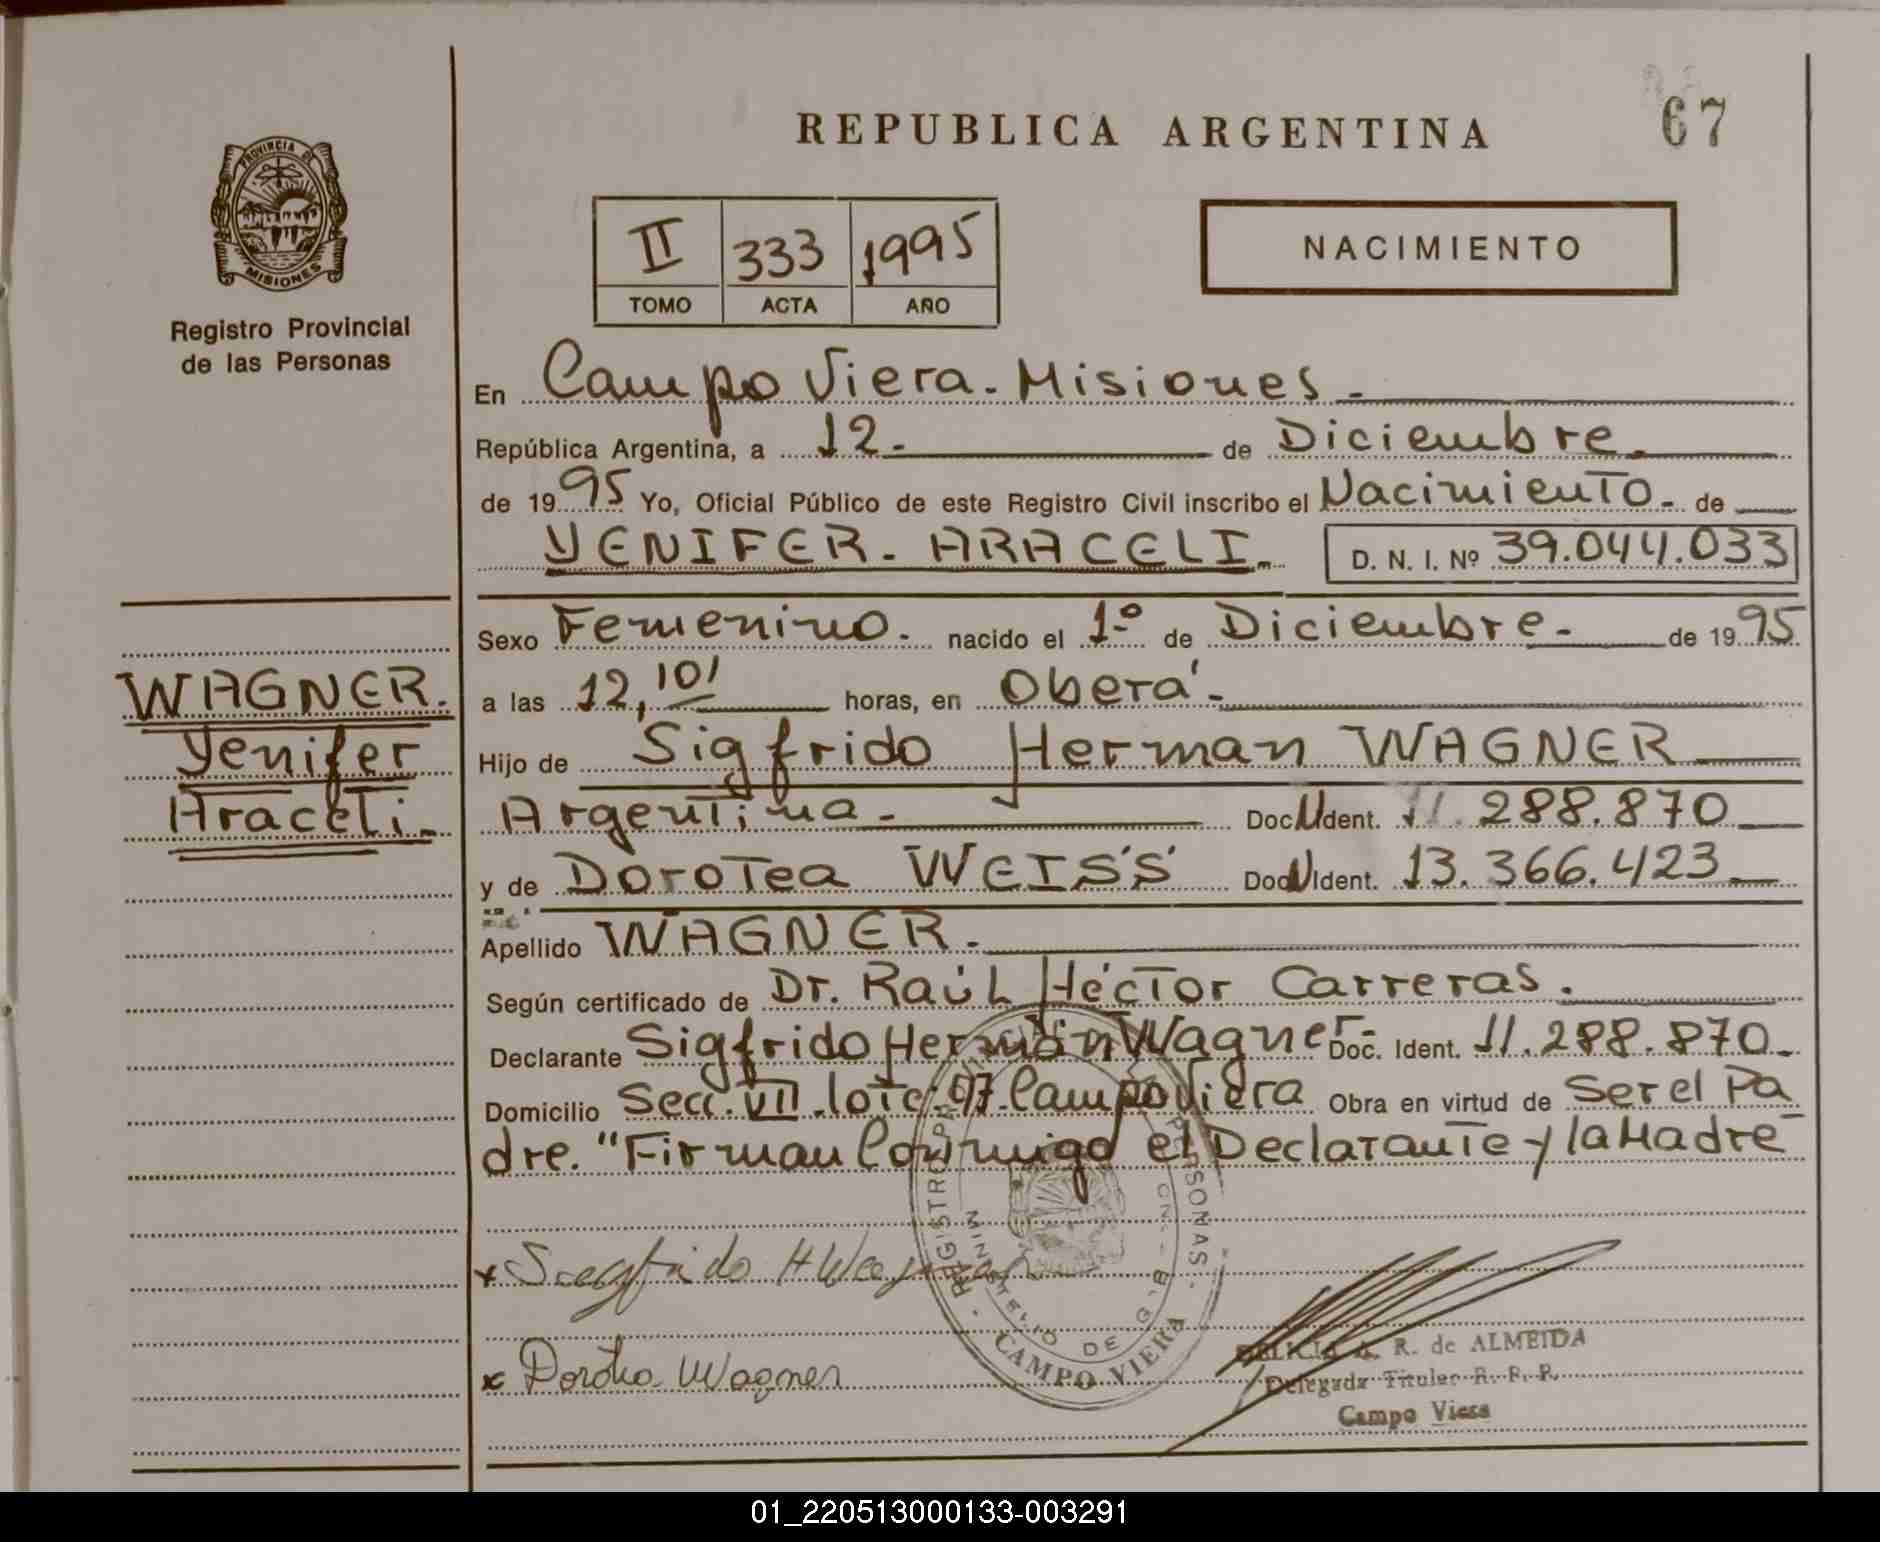 REPUBLICA ARGENTINA
67
PROVINCIA DE
MISIONES
Registro Provincial
de las Personas
II 333 1995
TOMO ACTA AÑO
NACIMIENTO
En Campo Viera - Misiones -
República Argentina, a 12 - de Diciembre.
de 1995 Yo, Oficial Público de este Registro Civil inscribo el Nacimiento - de
YENIFER - ARACELI D. N. I. Nº 39.044.033
Sexo Femenino. nacido el 1º de Diciembre - de 1995
a las 12,10' horas, en Oberá -
Hijo de Sigfrido Herman WAGNER
Argentina - Doc. Ident. 11.288.870
y de Dorotea WEISS Doc. Ident. 13.366.423
Apellido WAGNER.
Según certificado de Dr. Raúl Héctor Carreras.
Declarante Sigfrido Herman Wagner - Doc. Ident. 11.288.870.
Domicilio Secc. VII. lote 97. Campo Viera Obra en virtud de Ser el Pa
dre. "Firman Conmigo el Declarante y la Madre
WAGNER.
Yenifer
Araceli -
x Siegfrido H Wagner
x Dorotea Wagner
REGISTRO PERSONAS
CAMPO VIERA
A. R. de ALMEIDA
Delegada Titular R. P. P.
Campo Viera
01_220513000133-003291